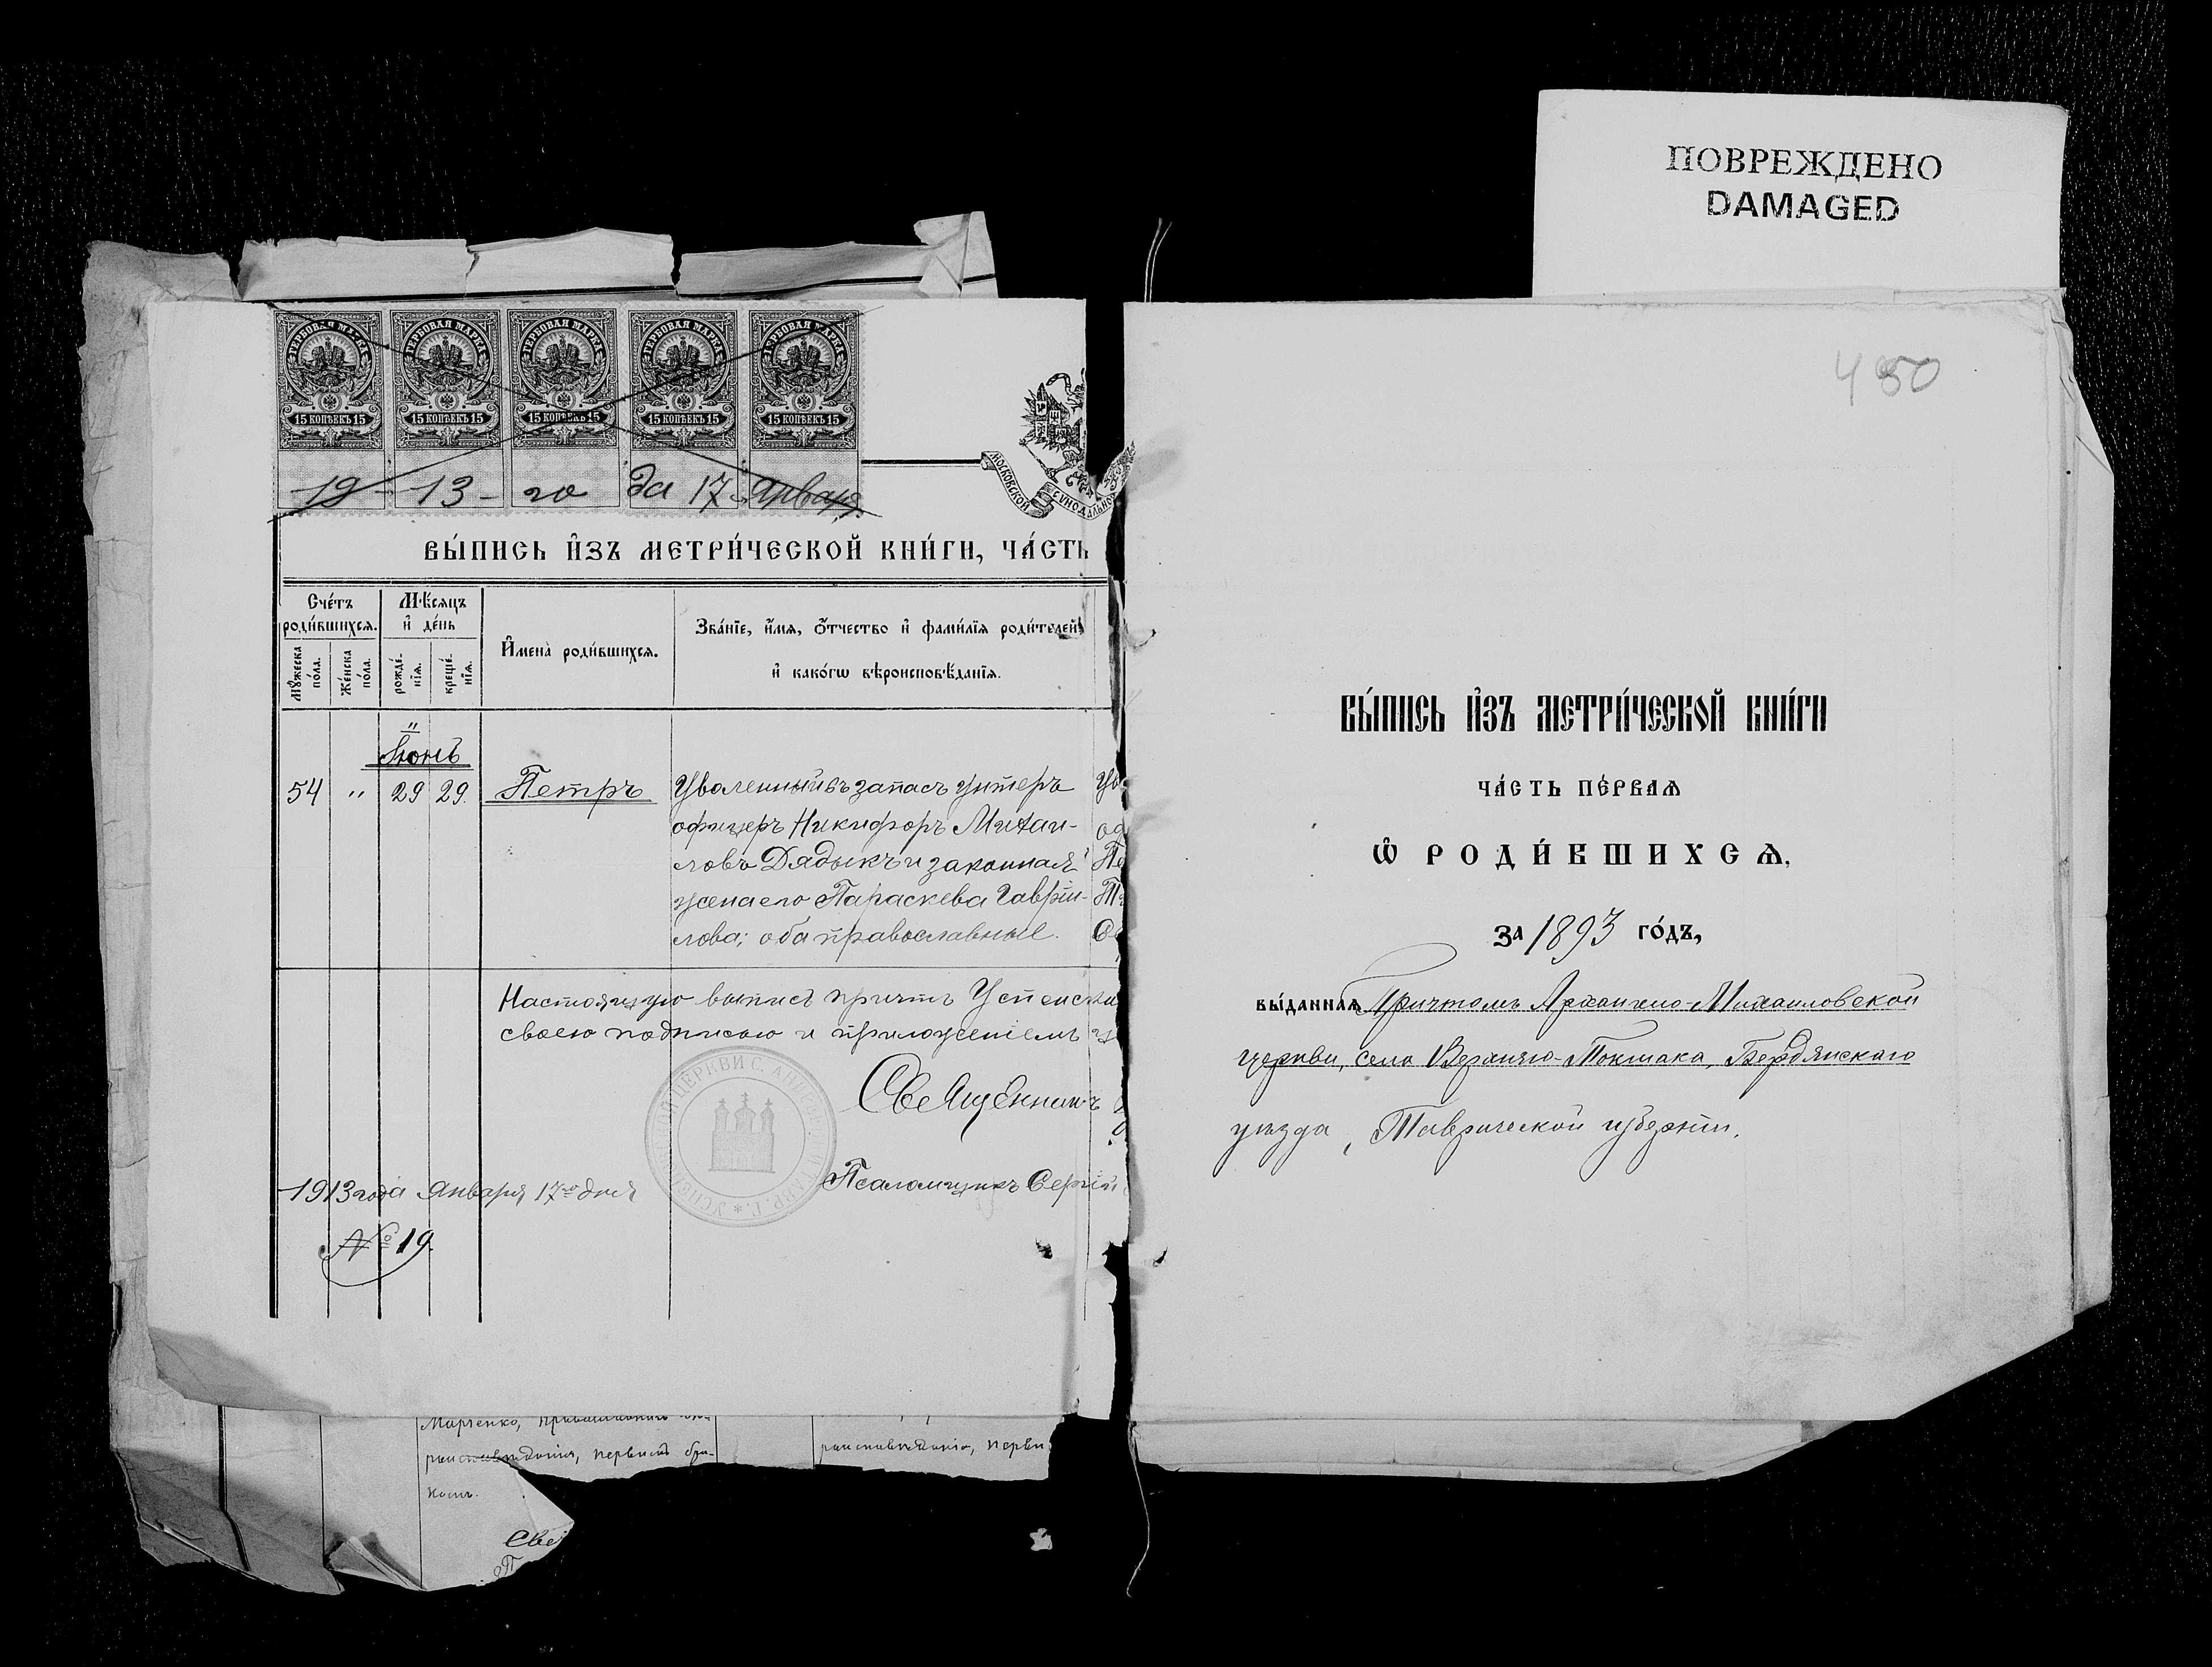 ПОВРЕЖДЕНО
DAMAGED
480
ГЕРБОВАЯ МАРКА ГЕРБОВАЯ МАРКА ГЕРБОВАЯ МАРКА ГЕРБОВАЯ МАРКА ГЕРБОВАЯ МАРКА
15 КОПѢЕКЪ 15 15 КОПѢЕКЪ 15 15 КОПѢЕКЪ 15 15 КОПѢЕКЪ 15 15 КОПѢЕКЪ 15
19-13-го да 17 Января
МОСКОВСКОЙ СѴНОДАЛЬНО
ВЫ́ПИСЬ И҆ЗЪ МЕТРИ́ЧЕСКОЙ КНИ́ГИ, ЧА́СТЬ
Счéтъ роди́вшихсѧ.
Мꙋ́жеска по́ла.
Же́нска по́ла.
Мѣ́сѧцъ и҆ де́нь
рожде́нїѧ.
креще́нїѧ.
И҆мена̀ роди́вшихсѧ.
Зва́нїе, и҆́мѧ, ѻ҆́тчество и҆ фами́лїѧ роди́телей
и҆ како́гѡ вѣроисповѣ́данїѧ.
Іюнь
54 " 29 29. Петръ Уволенный въ запасъ унтеръ
офицеръ Никифоръ Михаи-
ловъ Дядыкъ и законная
жена его Параскева Гавріи-
лова; оба православные.
Настоящую выпись причтъ Успенска
своею подписью и приложеніемъ
Священникъ
Псаломщикъ Сергій
1913 года Января 17го дня
№ 19.
Марченко,
раисповѣданія, первымъ бра-
комъ.
раисповѣданія, первы
Свя
ВЫ́ПИСЬ И҆ЗЪ МЕТРИ́ЧЕСКОЙ КНИ́ГИ
ЧА́СТЬ ПЕ́РВАѦ
Ѡ҆ РОДИ́ВШИХСѦ,
ЗА 1893 ГО́ДЪ,
ВЫ́ДАННАѦ Причтомъ Архангело-Михаиловской
церкви, села Верхняго-Токмака, Бердянскаго
уѣзда, Таврической губерніи.